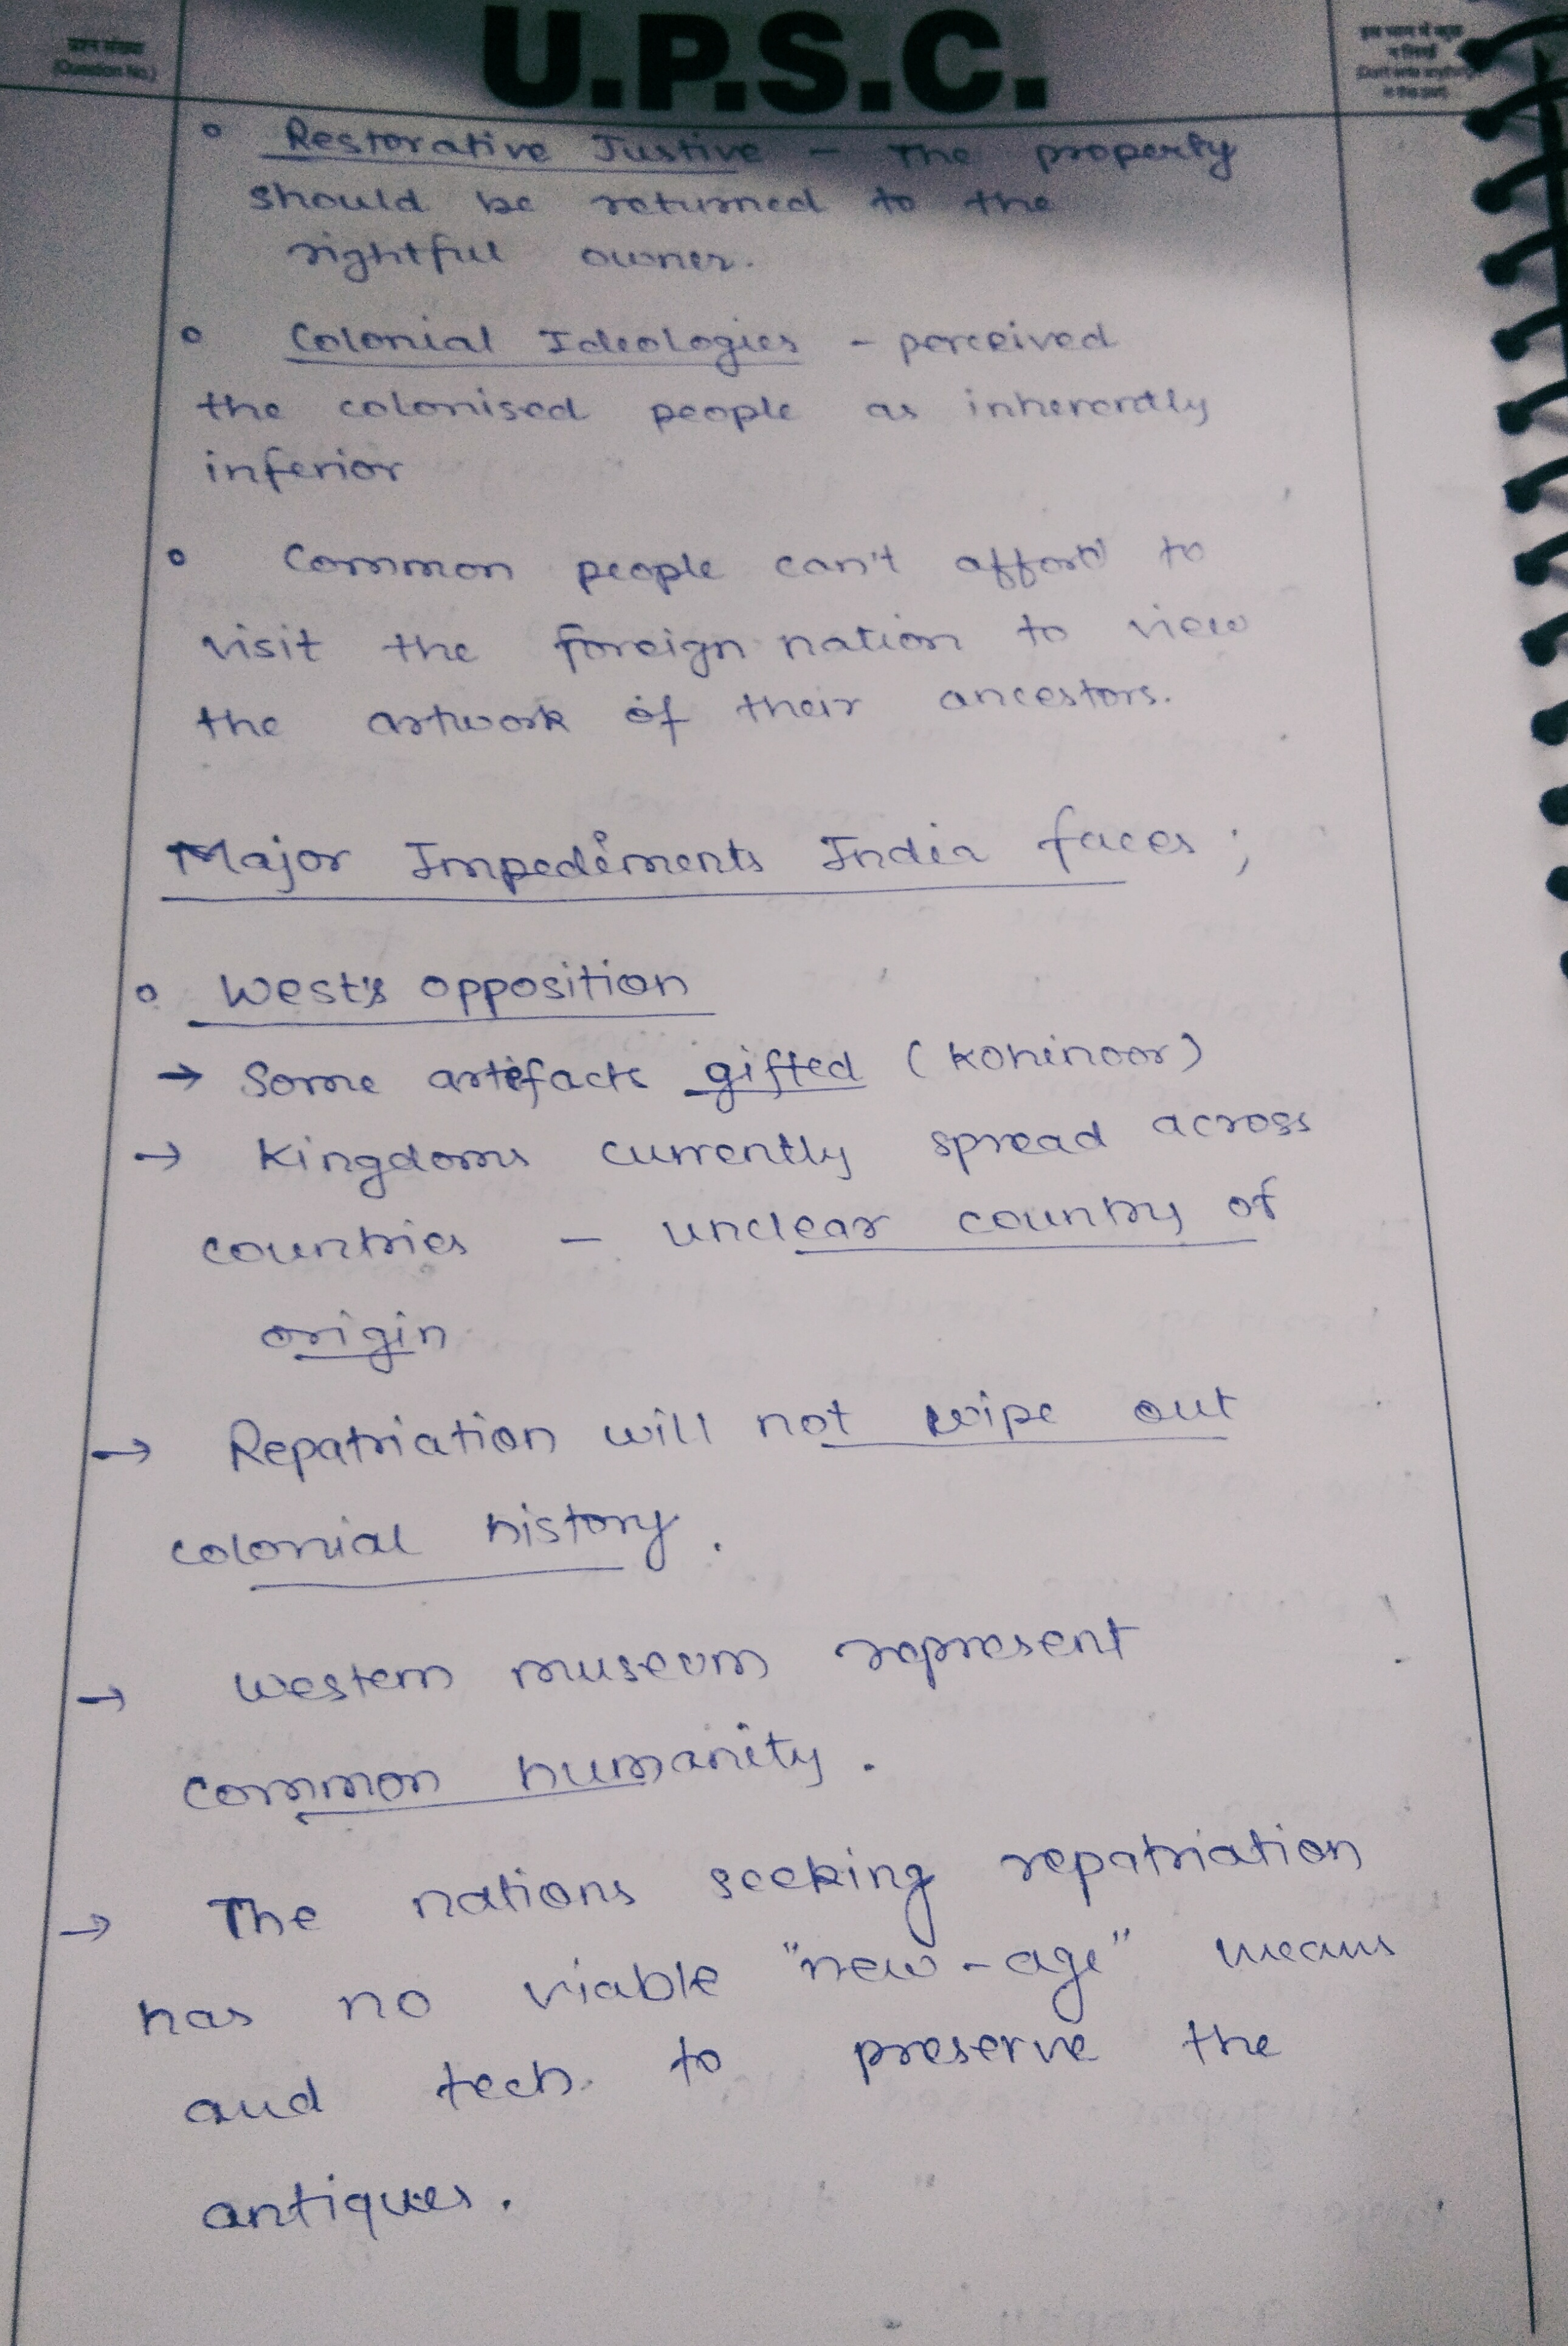 प्रश्न संख्या
(Question No.)
U.P.S.C.
इस भाग में कुछ
न लिखें
(Don't write anything
in this part)
Restorative Justive - The property
should be returned to the
rightful owner.
Colonial Ideologies - perceived
the colonised people as inherently
inferior
Common people can't afford to
visit the foreign nation to view
the artwork of their ancestors.
Major Impediments India faces ;
West's opposition
→ Some artifacts gifted (Kohinoor)
→ Kingdoms currently spread across
countries - unclear country of
origin
→ Repatriation will not wipe out
colonial history.
→ Western museum represent
common humanity.
→ The nations seeking repatriation
has no viable "new-age" means
and tech. to preserve the
antiques.